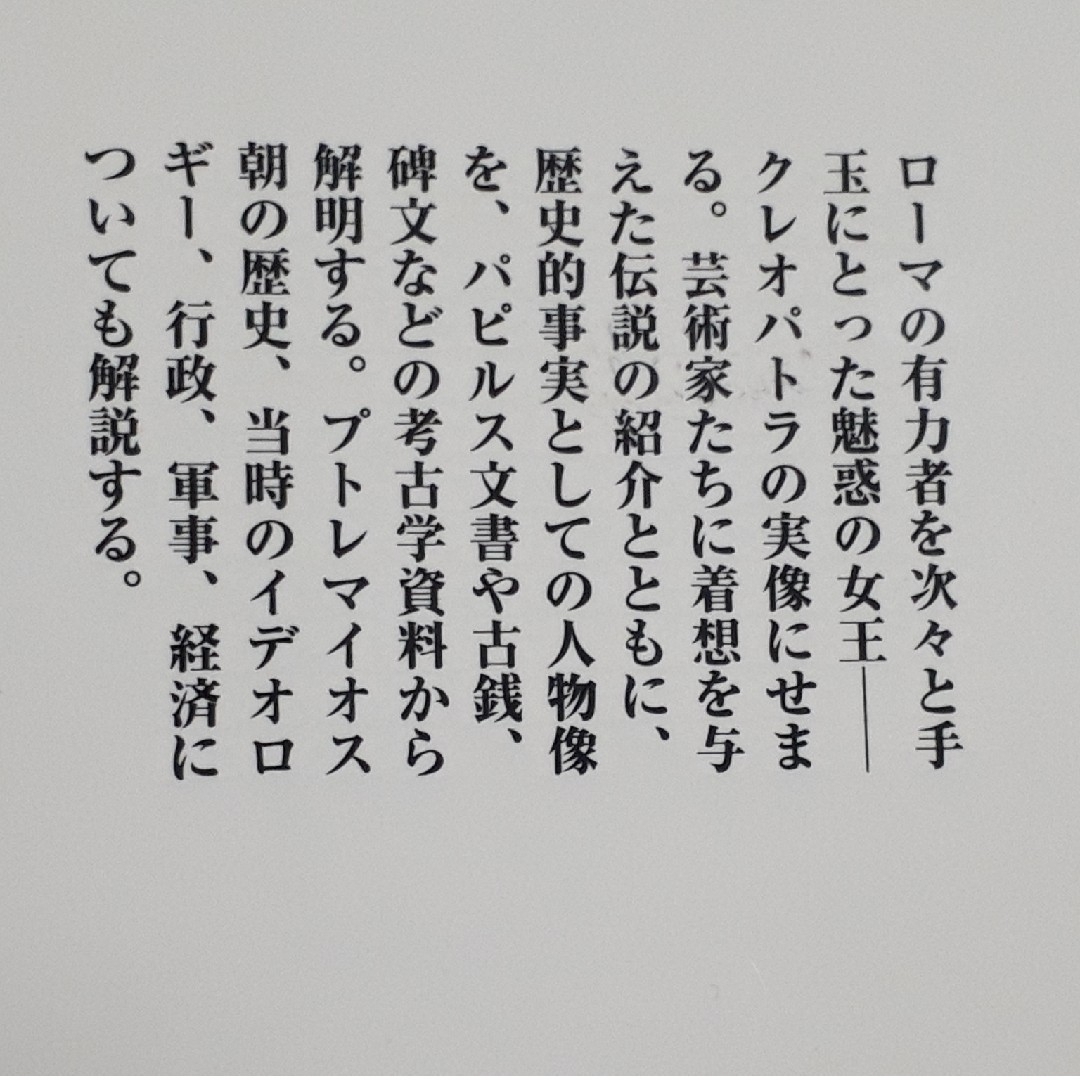 ローマの有力者を次々と手
玉にとった魅惑の女王――
クレオパトラの実像にせま
る。芸術家たちに着想を与
えた伝説の紹介とともに、
歴史的事実としての人物像
を、パピルス文書や古銭、
碑文などの考古学資料から
解明する。プトレマイオス
朝の歴史、当時のイデオロ
ギー、行政、軍事、経済に
ついても解説する。